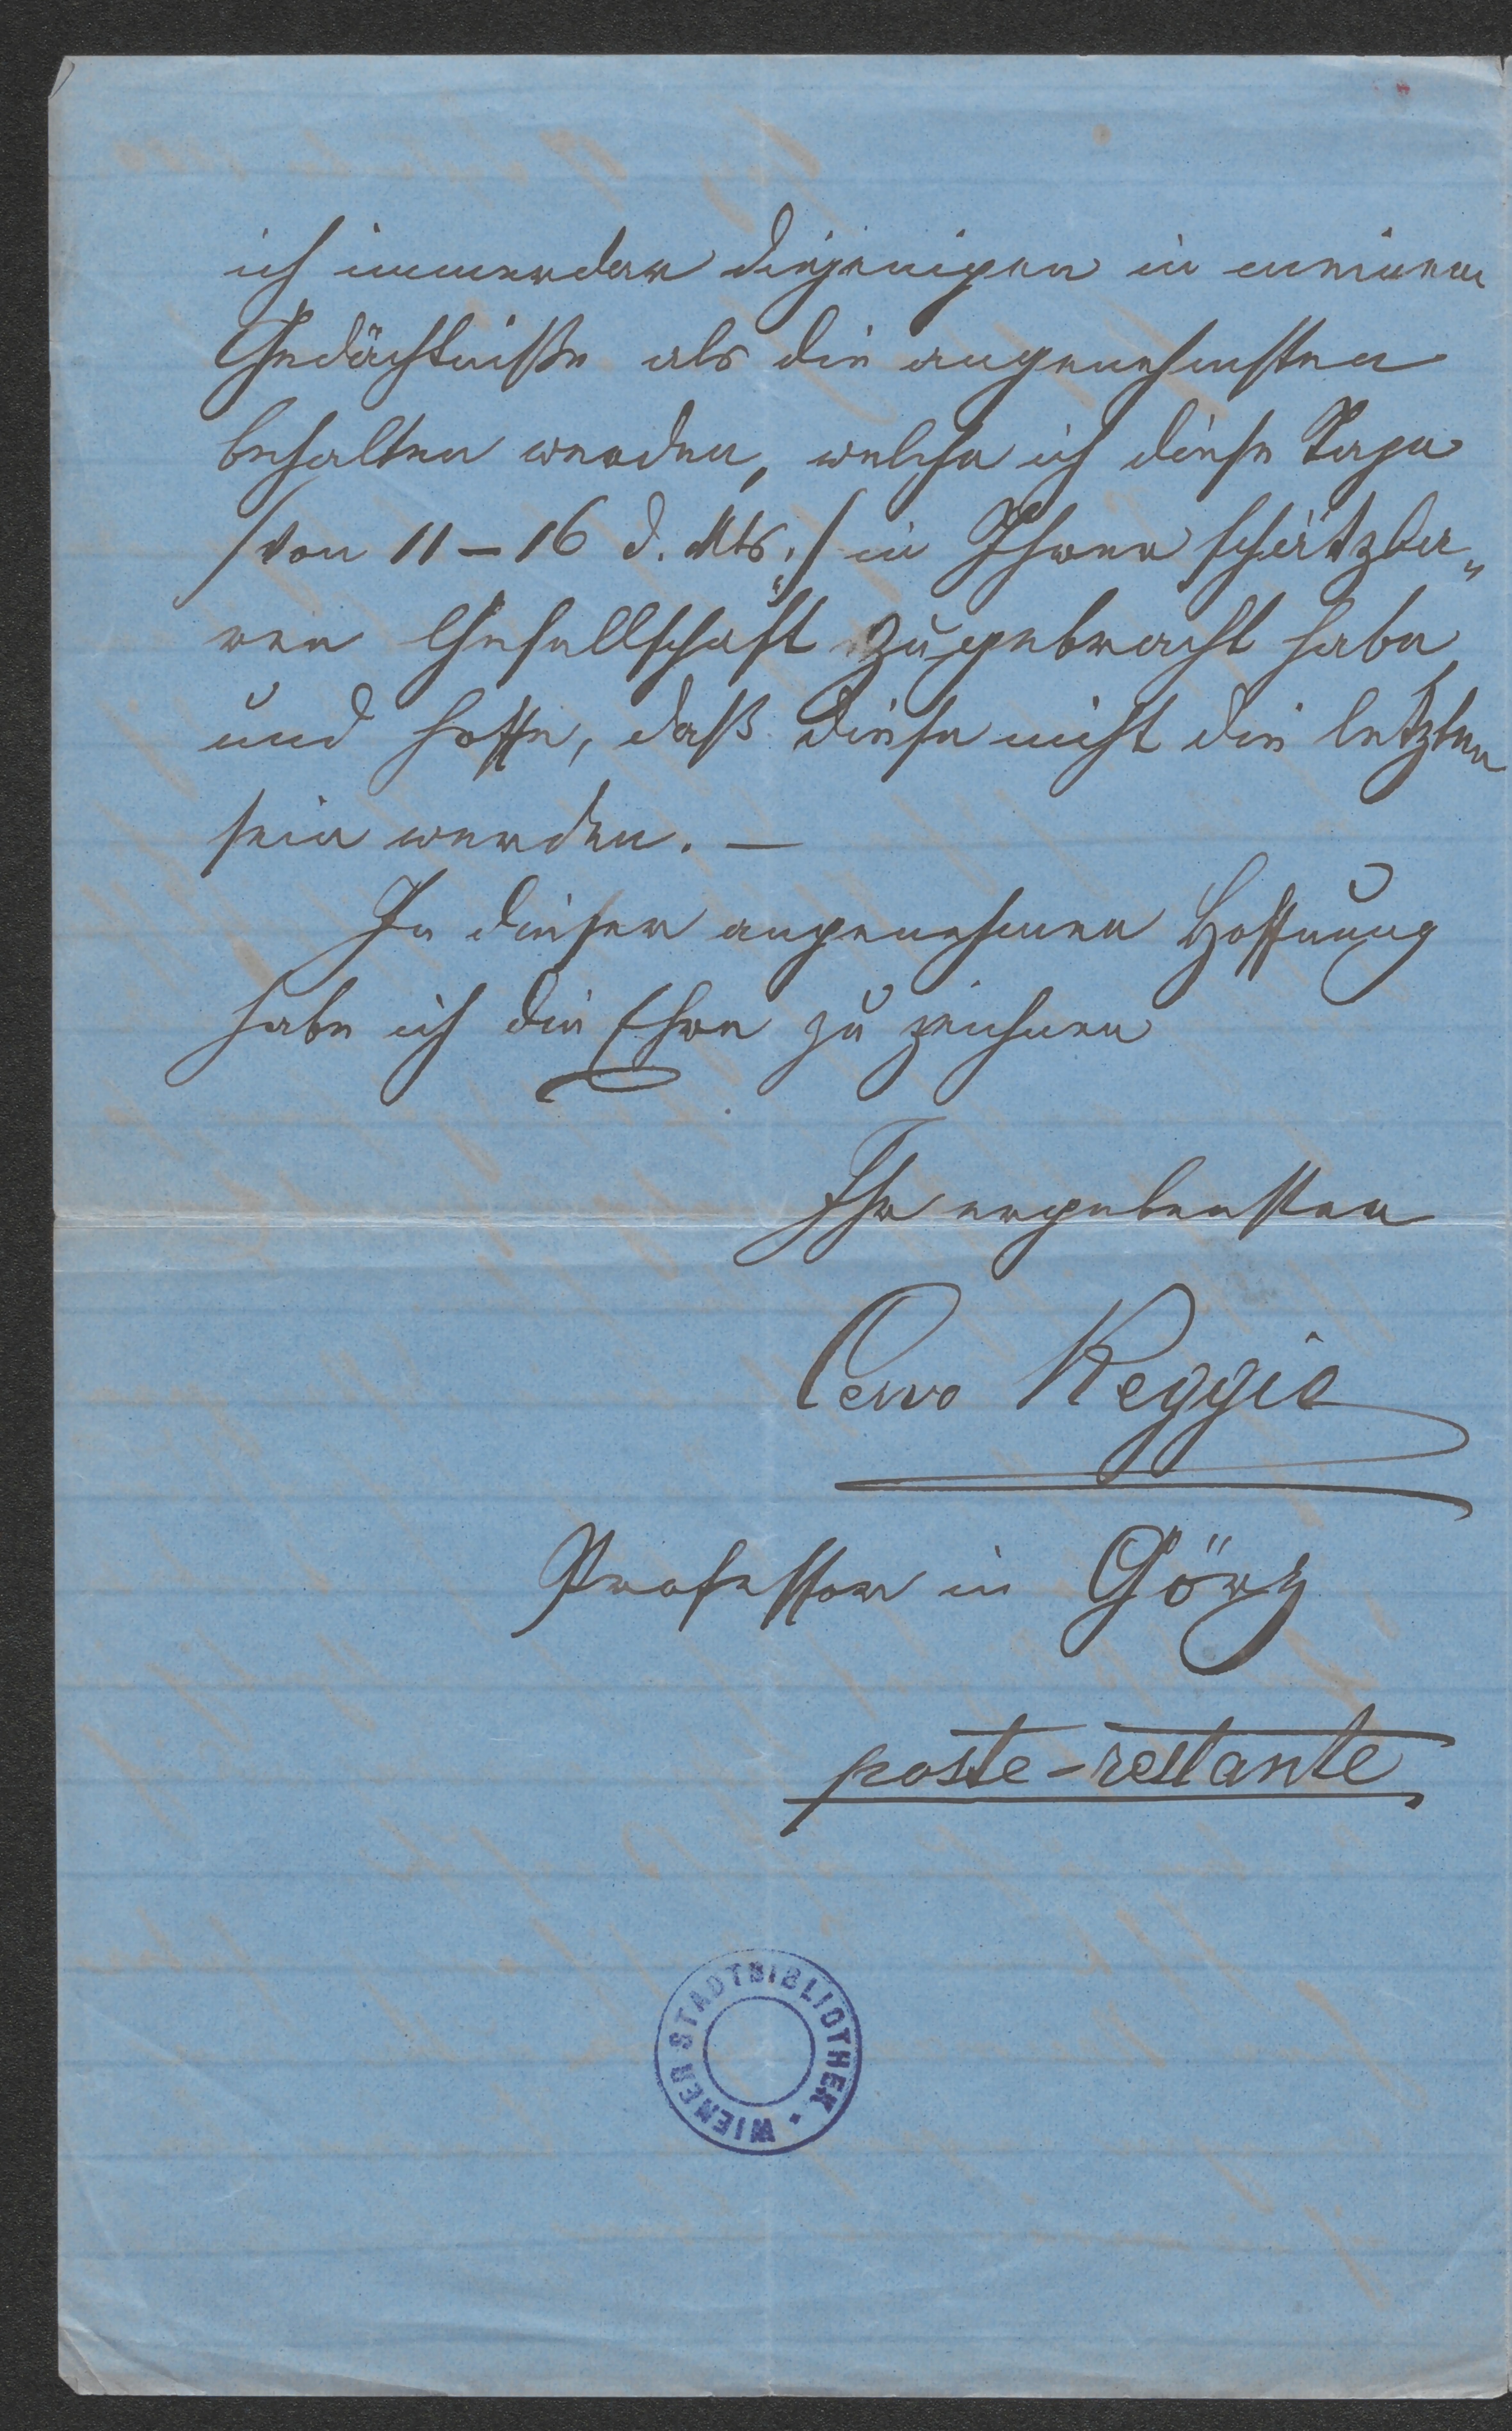 ich immerdar diejenigen in meinem
Gedächtniße als die angenehmsten
behalten werden, welche ich diese Tage
/von 11–16 d. Mts./ in Ihrer schätzba„
ren Gesellschaft zugebracht habe
und hoffe, daß diese nicht die letzten
sein werden. —
In dieser angenehmen Hoffnung
habe ich die Ehre zu zeichnen
Ihr ergebensten
Cervo Reggio
Professor in Görz
poste-restante
WIENER STADTBIBLIOTHEK